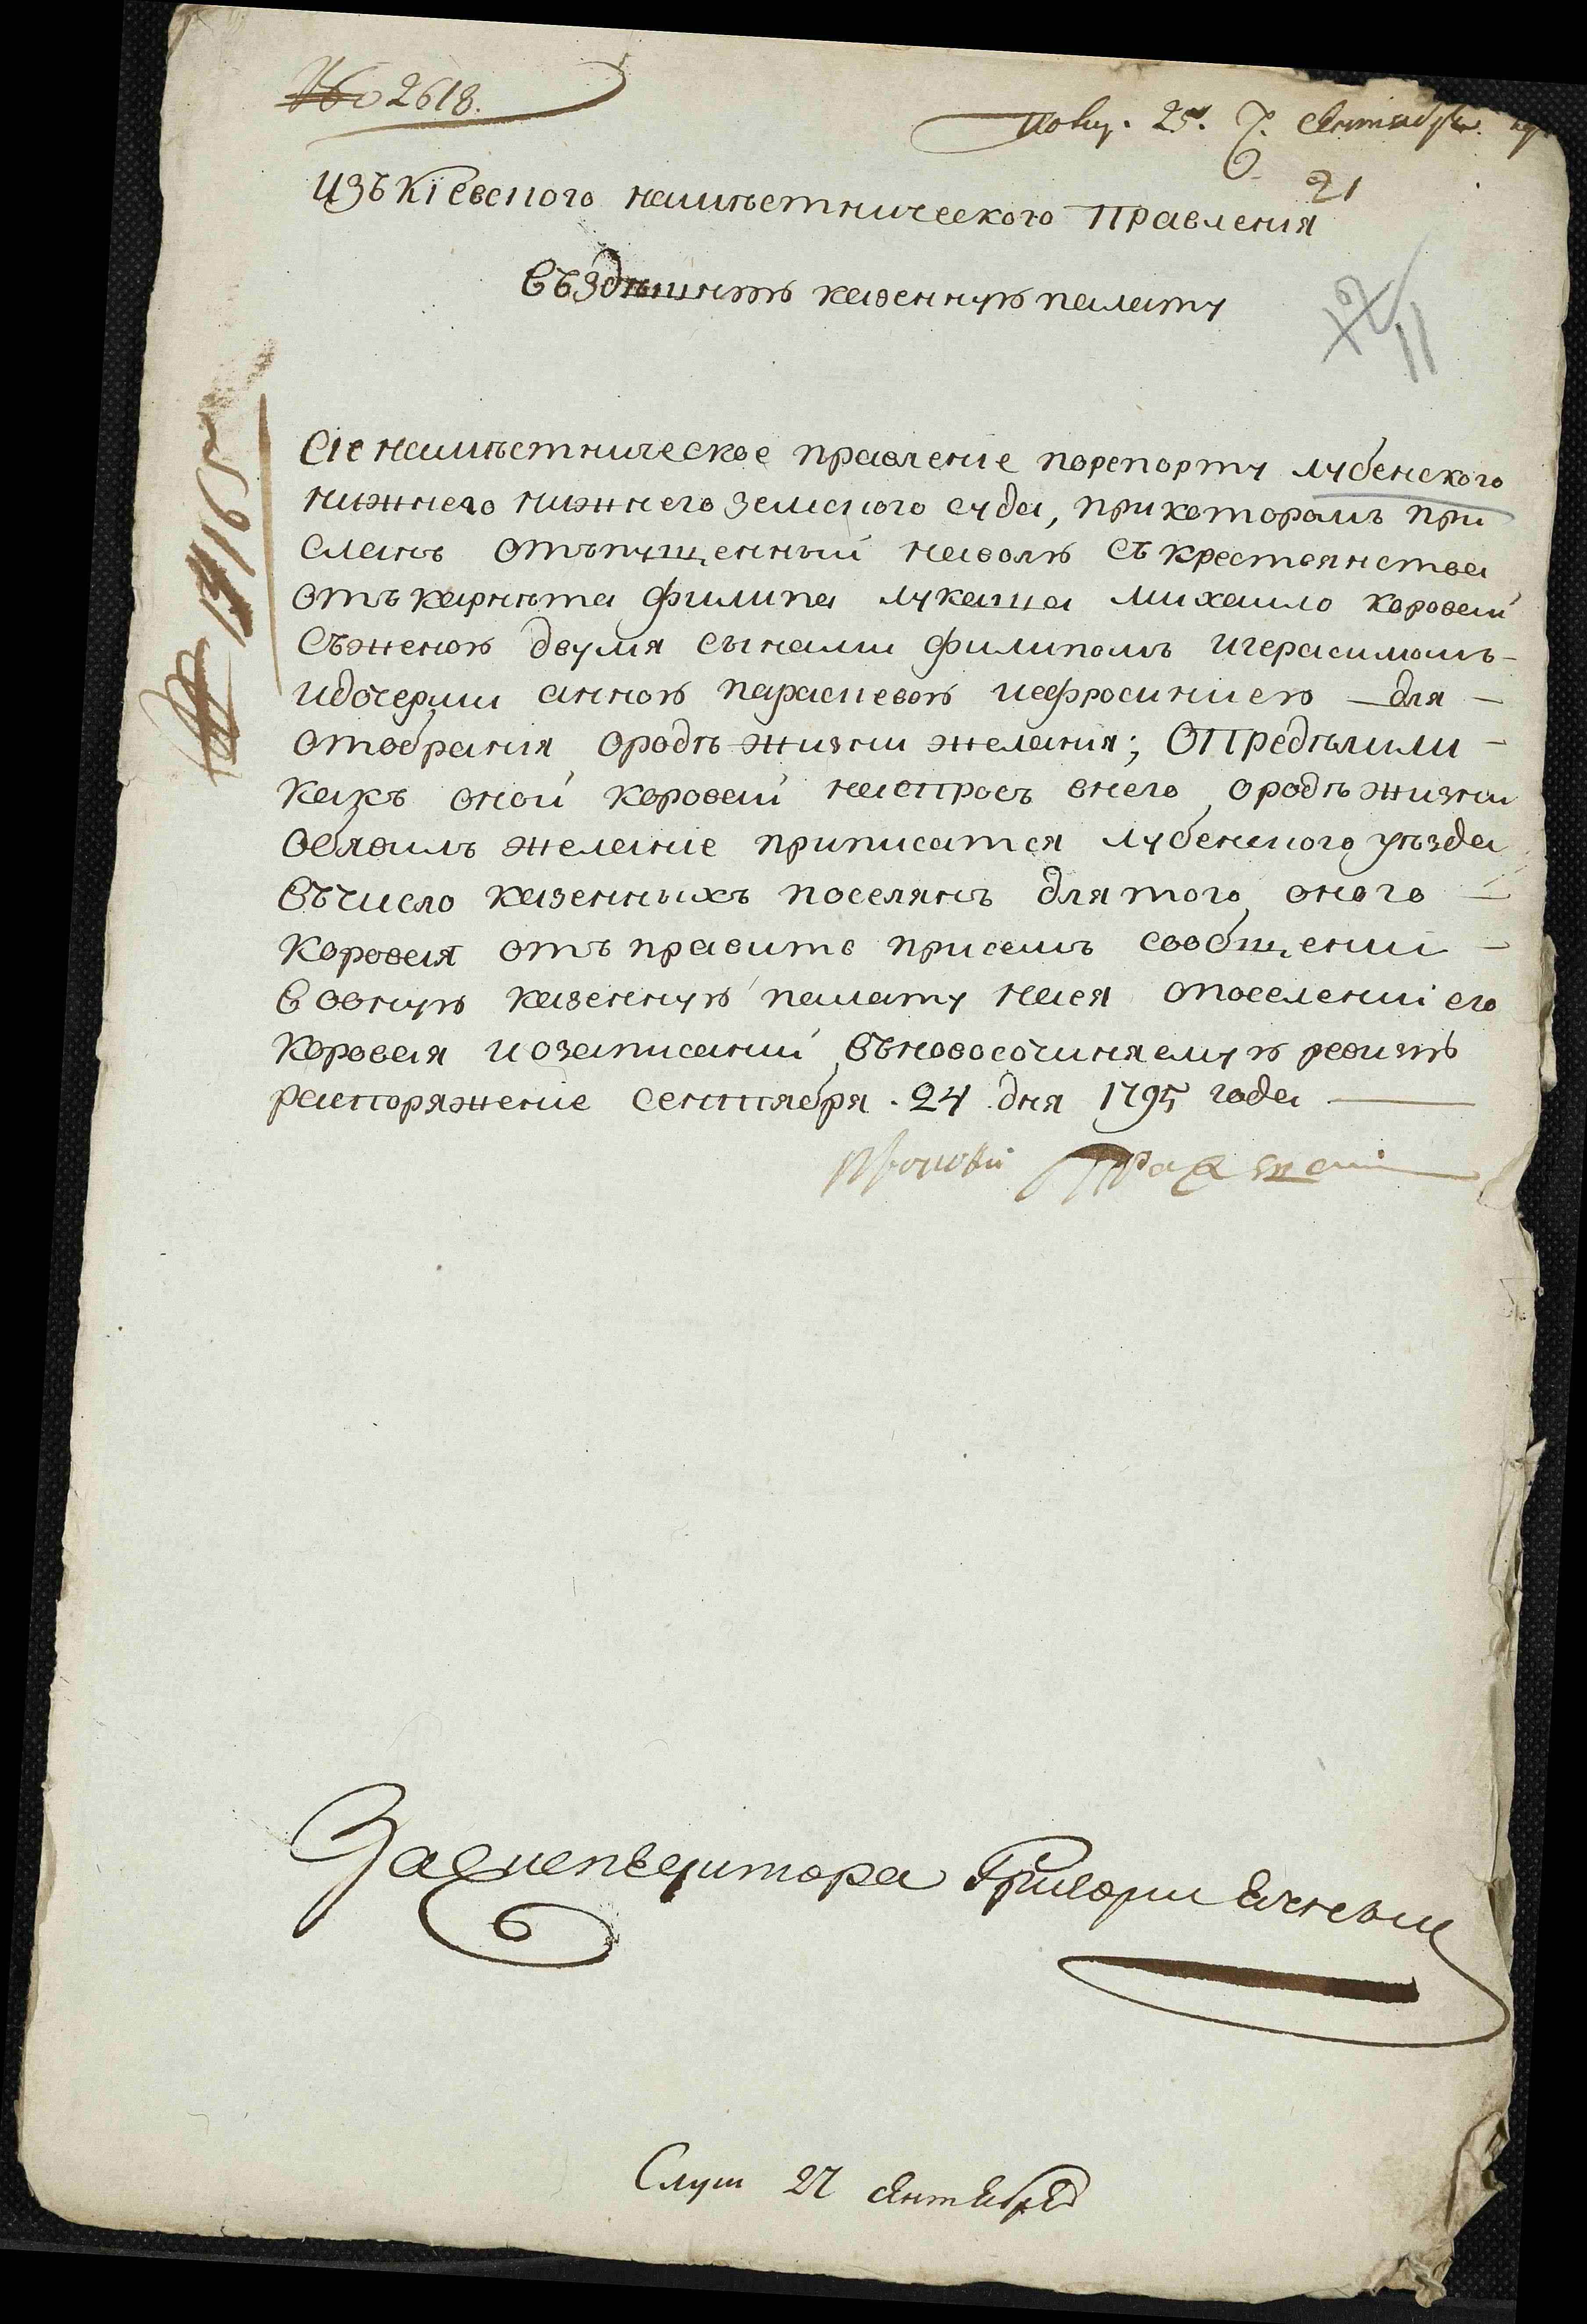 № 2618.
Получ. 25. Сентября
21
изъ кіевского наместнического правления
въздешнюю казенную палату
12
11
1716
Сіе наместническое правление порепорту лубенского
нижнего нижнего земского суда, прикоторомъ при
сланъ отъпущенный наволю съ крестьянства
отъ корнета филипа лукаша михаило коровай
съженою двумя сынами филипомъ игерасимомъ
идочерми анною параскевою иефросиниею для
отобрания ородѣ жизни желания; Определили
какъ оной коровай наспросъ внего ородѣ жизни
обявилъ желание приписатся лубенского уѣзда
въчисло казенныхъ поселянъ для того оного
коровая отъправить присемъ сообщении
в овную казенную палату ная опоселении его
коровая и озаписании въновосочиняемую ревизию
распоряжение сентября 24 дня 1795 года
Прокофій
Засекретаря Григории
Слуш 27 сентября